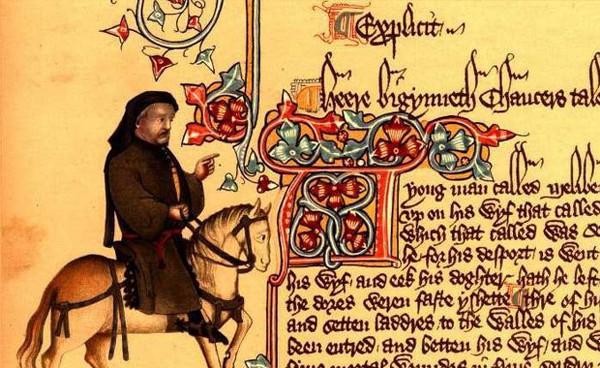 Explicit
Heere bigynneth Chaucers tale
A yong man called melibe
up on his wyf that called
Which that called was So
he for his desport is went
his wyf and eek his doghter hath he left
the dores weren faste yshette thre of his
and setten laddres to the walles of his
been entred and betten his wyf and w